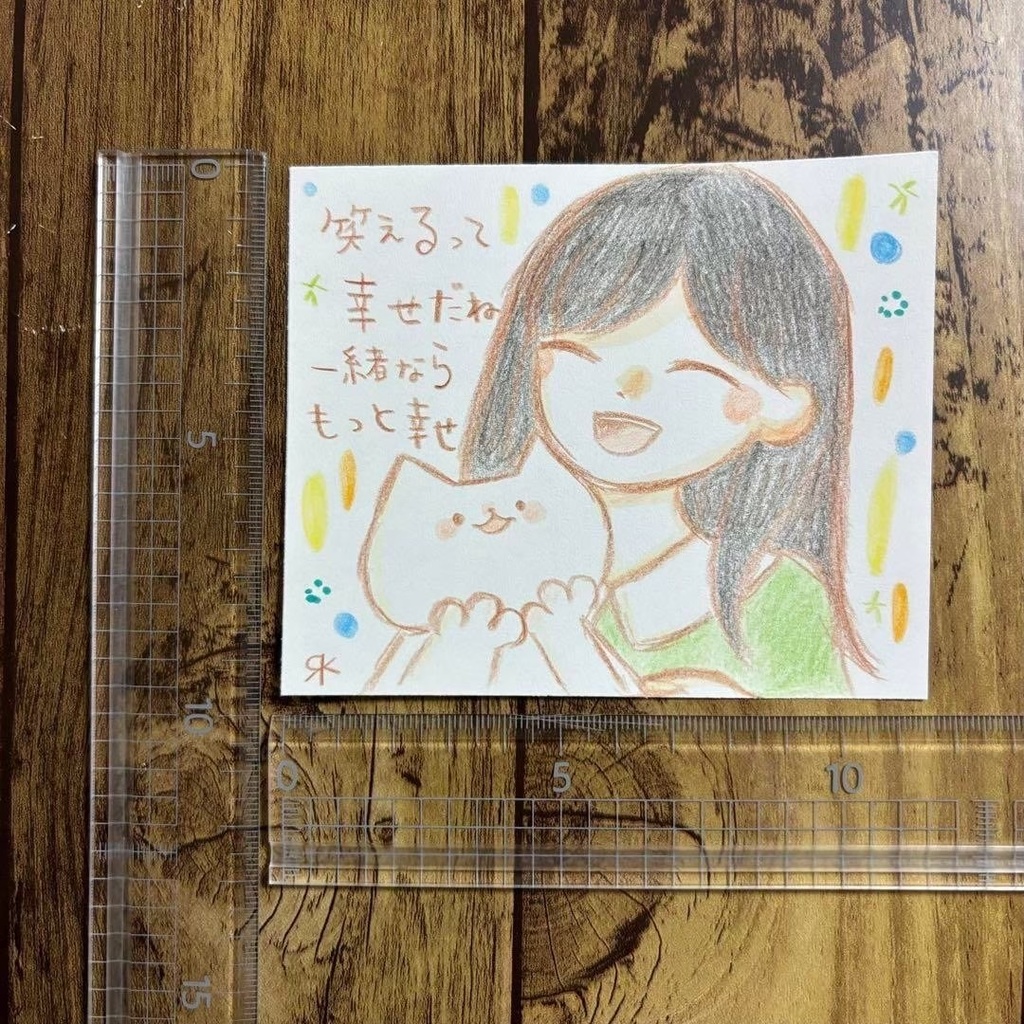 笑えるって
幸せだね
一緒なら
もっと幸せ
RK
0
5
10
15
0
5
10